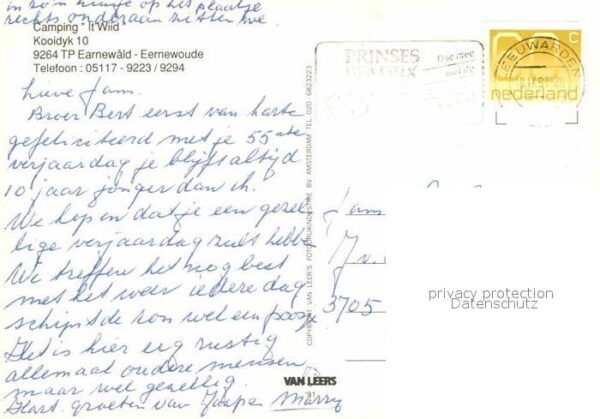 in zo'n huisje op het plaatje
rechts onderaan zitten we.
Camping "It Wiid"
Kooidyk 10
9264 TP Earnewâld - Eernewoude
Telefoon : 05117 - 9223 / 9294
Lieve Jam.
Broer Bert eerst van harte
gefeliciteerd met je 55ste
verjaardag je blijft altijd
10 jaar jonger dan ik.
We hopen dat je een gezel
lige verjaardag zult hebbe
We treffen het nog best
met het weer iedere dag
schijnt de zon wel een poosje
Het is hier erg rustig
allemaal oudere mensen
maar wel gezellig.
Hart. groeten van Jaap Marry
VAN LEERS
COPYRIGHT VAN LEER'S FOTODRUKINDUSTRIE BV AMSTERDAM TEL. 020 - 6823223
PRINSES
BEATRIX
Doe mee
LEEUWARDEN
c
nederland
J.v.
3705
privacy protection
Datenschutz